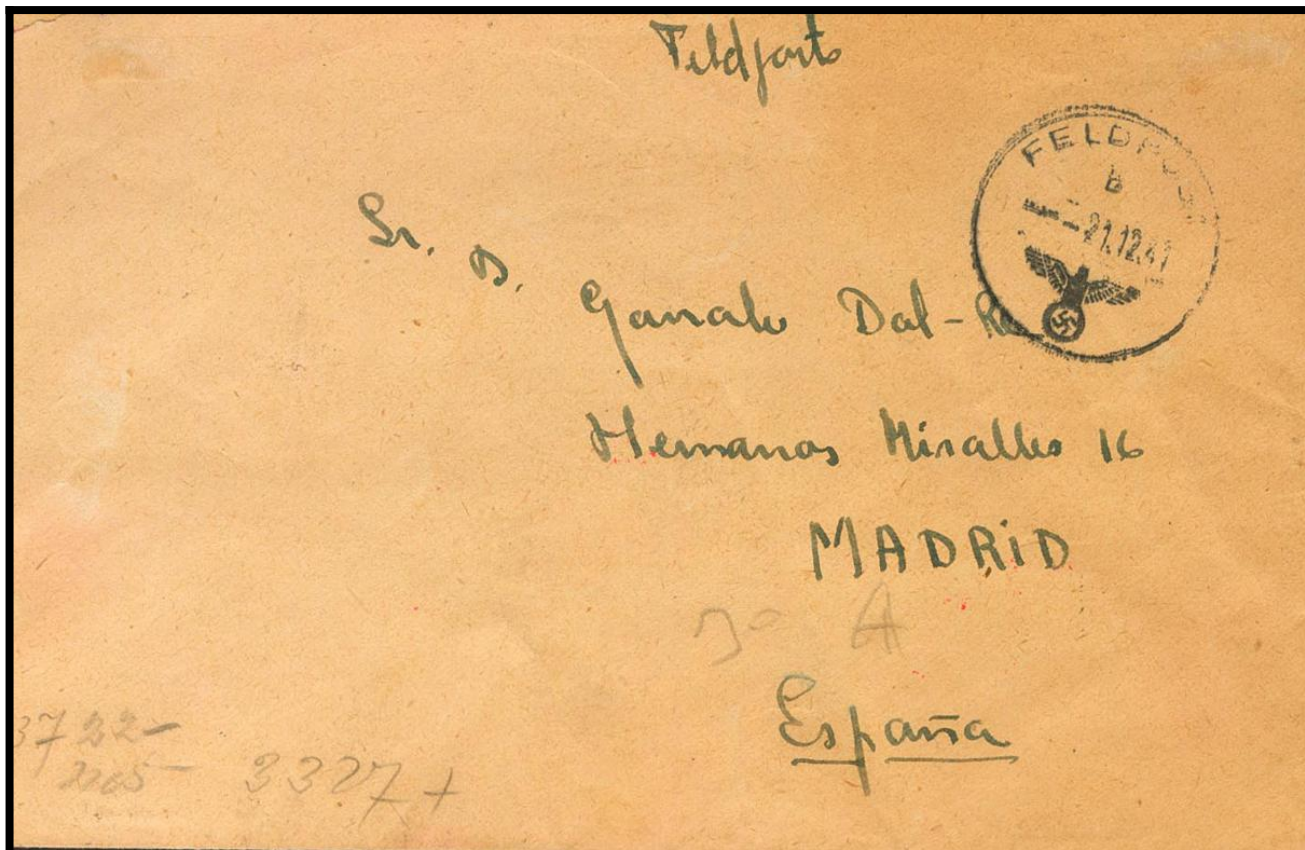 Feldpost
FELDPOST
b
21.12.41
Sr. D.
Gonzalo Dal-Re
Hermanos Miralles 16
MADRID
3º A
España
3722-
3327+